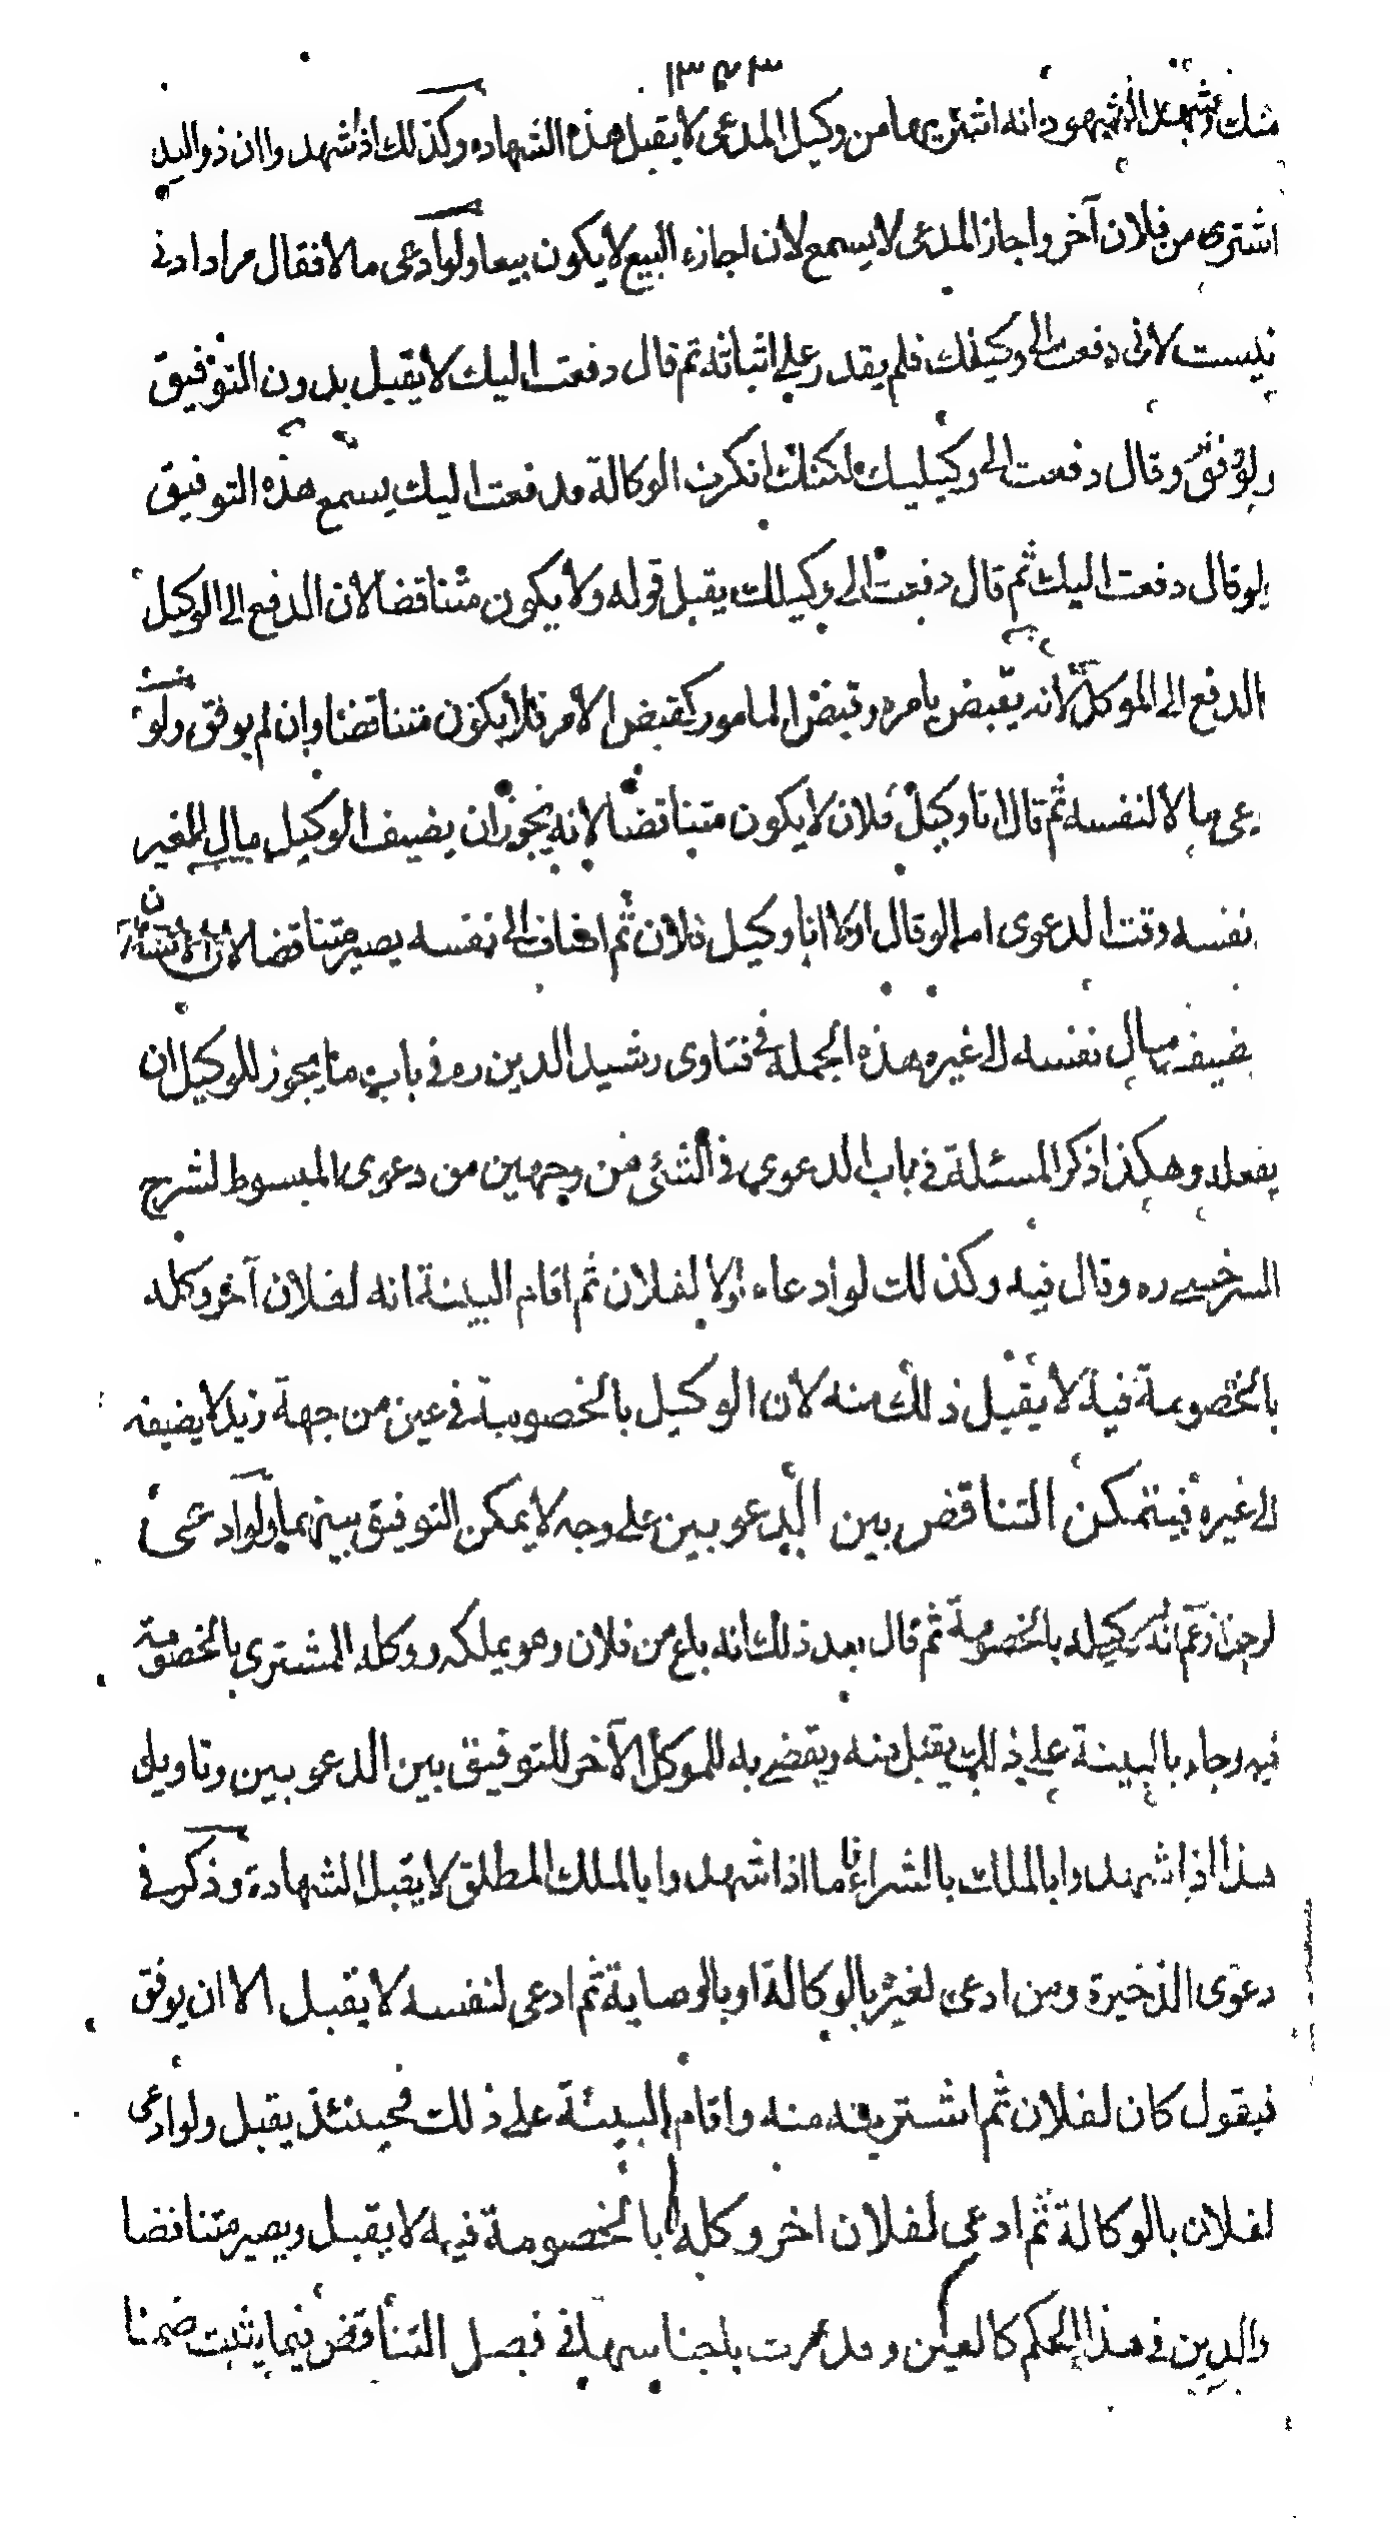 منك وشهد الشهود انه اشتريها من وكيل المدعى لا يقبل هذه الشهاده وكذلك اذ اشهد وا ان ذو اليد
اشترى من فلان آخر واجاز المدعى لا يسمع لان اجازه البيع لا يكون بيعا ولو ادعى ما لا فقال مرا دادنى
نيست لانى دفعت الى وكيلك فلم يقدر على اثباته ثم قال دفعت اليك لا يقبل بدون التوفيق
ولو وفق وقال دفعت الى وكيليك لكنك انكرت الوكالة فدفعت اليك يسمع هذه التوفيق
ولو قال دفعت اليك ثم قال دفعت الى وكيلك يقبل قوله ولا يكون متناقضا لان الدفع الى الوكيل
الدفع الى الموكل لانه يقبض بامره وقبض المامور كقبض الامر فلا يكون متناقضا وان لم يوفق ولو
دعى ما لا لنفسه ثم قال انا وكيل فلان لا يكون متناقضا لانه يجوز ان يضيف الوكيل مال الغير
نفسه وقت الدعوى اما لو قال اولا انا وكيل فلان ثم اضاف الى نفسه يصير متناقضا لان الانسان
يضيف مال نفسه الى غيره هذه الجملة فى فتاوى رشيد الدين ره فى باب ما يجوز للوكيل ان
يفعله وهكذا ذكر المسئلة فى باب الدعوى فى الشئى من وجهين من دعوى المبسوط لشرح
السرخسى ره وقال فيه وكذلك لو ادعاه اولا لفلان ثم اقام البينة انه لفلان آخر وكله
بالخصومة فيه لا يقبل ذلك منه لان الوكيل بالخصومة فى عين من جهة زيد لا يضيفه
الى غيره فيتمكن التناقض بين الدعويين على وجه لا يمكن التوفيق بينهما ولو ادعى
لرجل زعم انه وكيله بالخصومة ثم قال بعد ذلك انه باع من فلان وهو يملكه ووكله المشترى بالخصومة
فيه وجاء بالبينة على ذلك يقبل منه ويقضى به للموكل الآخر للتوفيق بين الدعويين وتاويل
هذا اذا شهدوا بالملك بالشراء فاما اذا شهدوا بالملك المطلق لا يقبل الشهادة وذكر فى
دعوى الذخيرة ومن ادعى لغيره بالوكالة او بالوصاية ثم ادعى لنفسه لا يقبل الا ان يوفق
فيقول كان لفلان ثم اشتريته منه واقام البينة على ذلك فحينئذ يقبل ولو ادعى
لفلان بالوكالة ثم ادعى لفلان اخر وكله بالخصومة فيه لا يقبل ويصير متناقضا
والدين فى هذا الحكم كالعين وقد مرت باجناسها فى فصل التناقض فيما يثبت ضمنا